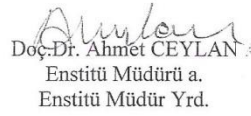 Doç.Dr. Ahmet CEYLAN
Enstitü Müdürü a.
Enstitü Müdür Yrd.